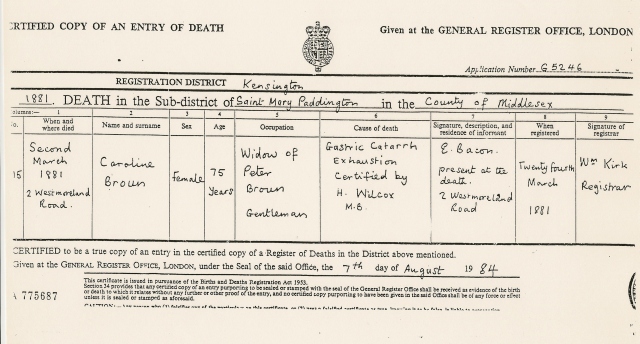 CERTIFIED COPY OF AN ENTRY OF DEATH
Given at the GENERAL REGISTER OFFICE, LONDON
Application Number G5246
REGISTRATION DISTRICT Kensington
1881. DEATH in the Sub-district of Saint Mary Paddington in the County of Middlesex
Columns:— 1 2 3 4 5 6 7 8 9
No. When and where died Name and surname Sex Age Occupation Cause of death Signature, description, and residence of informant When registered Signature of registrar
15 Second March 1881 2 Westmoreland Road. Caroline Brown Female 75 Years Widow of Peter Brown Gentleman Gastric Catarrh Exhaustion Certified by H. Wilcox M.B. E. Bacon. present at the death. 2 Westmoreland Road Twenty fourth March 1881 Wm Kirk Registrar
CERTIFIED to be a true copy of an entry in the certified copy of a Register of Deaths in the District above mentioned.
Given at the GENERAL REGISTER OFFICE, LONDON, under the Seal of the said Office, the 7th day of August 1984
This certificate is issued in pursuance of the Births and Deaths Registration Act 1953.
Section 34 provides that any certified copy of an entry purporting to be sealed or stamped with the seal of the General Register Office shall be received as evidence of the birth
or death to which it relates without any further or other proof of the entry, and no certified copy purporting to have been given in the said Office shall be of any force or effect
unless it is sealed or stamped as aforesaid.
A 775687